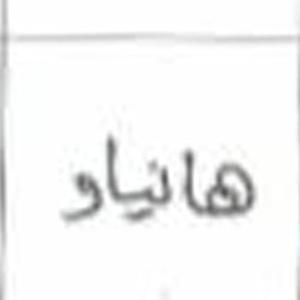 هانیاو